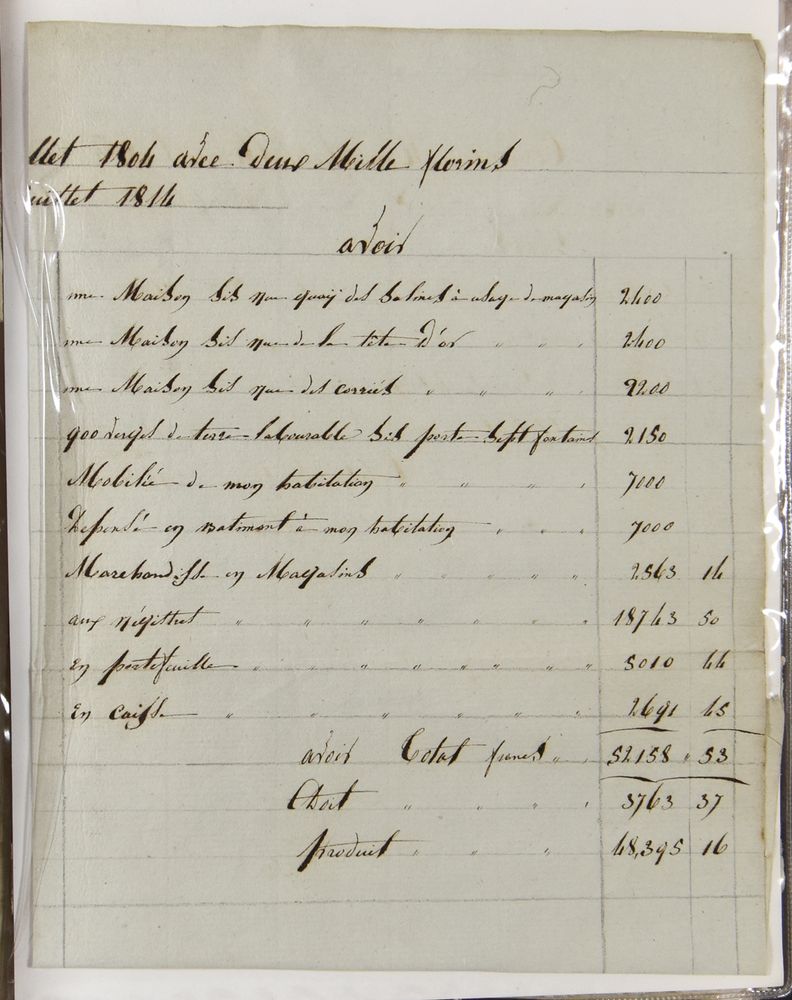 llet 1804 avec Deux Mille florins
uillet 1814
avoir
une Maison sis rue quay des Salines à usage de magasin 2400
une Maison sis rue de la tête D'or " " " 2400
une Maison sis rue des corriés " " " " 2200
900 verges de terre labourable sis porte Sept fontaines 2150
Mobilié de mon habitation " " " " 7000
Depensé en batiment à mon habitation " " " 7000
Marchandisse en Magasins " " " " " 2563 14
aux régittres " " " " " " " 18743 50
En portefeuille " " " " " " " " 5010 44
En caisse " " " " " " 2691 45
avoir Total francs " " 52158 " 53
Doit " " " " 3763 37
produit " " " 48,395 16